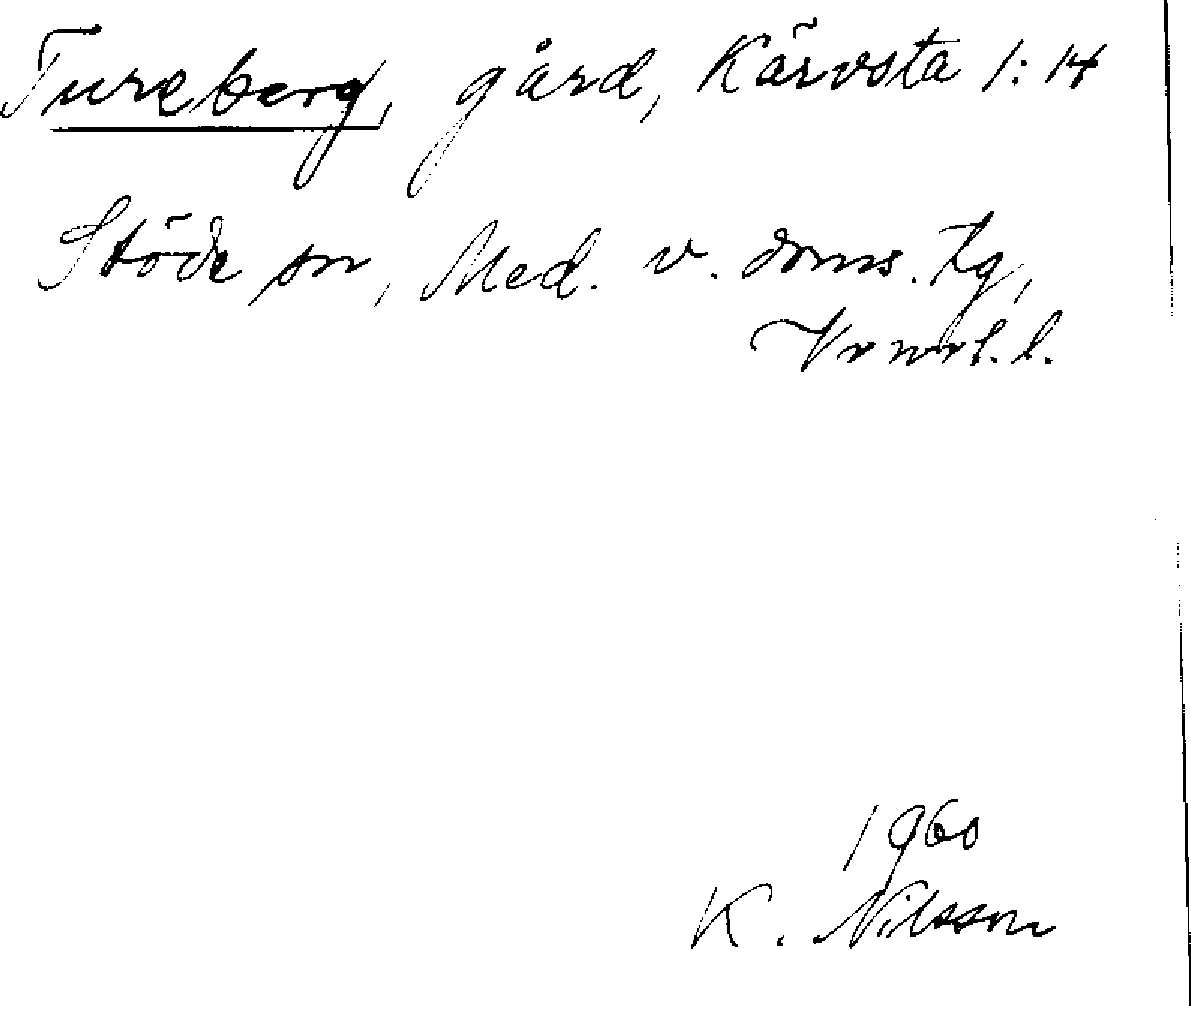 Tureberg, gård, Kärvsta 1:14
Stöde sn, Med. v. doms. tg,
Vrnorl. l.
1960
K. Nilsson